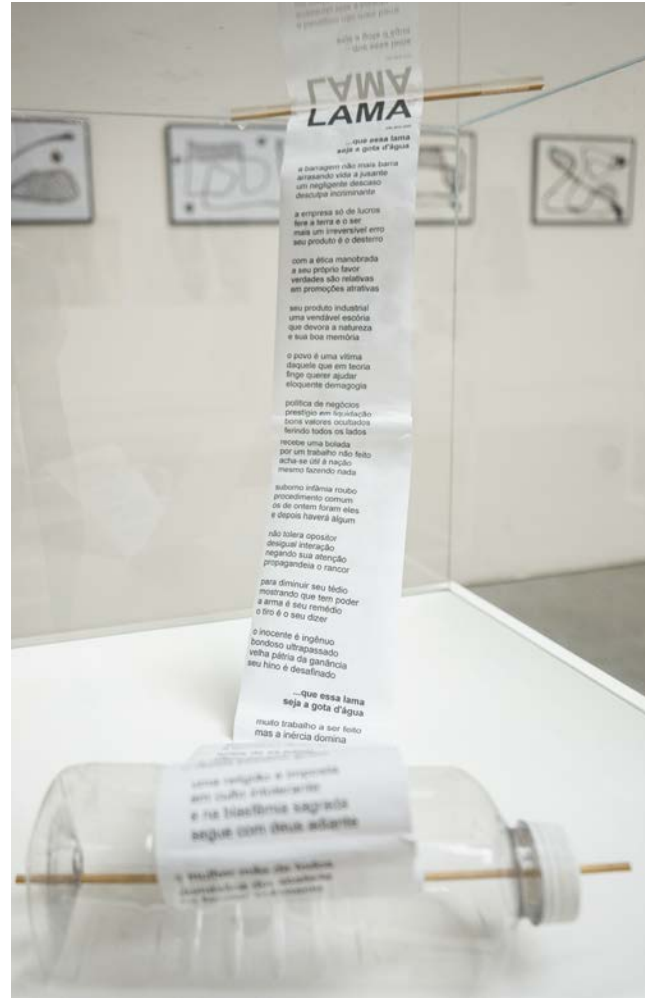 LAMA
LAMA
...que essa lama
seja a gota d'água
a barragem não mais barra
arrasando vida à jusante
um negligente descaso
desculpa incriminante
a empresa só de lucros
fere a terra e o ser
mais um irreversível erro
seu produto é o desterro
com a ética manobrada
a seu próprio favor
verdades são relativas
em promoções atrativas
seu produto industrial
uma vendável escória
que devora a natureza
e sua boa memória
o povo é uma vítima
daquele que em teoria
finge querer ajudar
eloquente demagogia
política de negócios
prestígio em liquidação
bons valores ocultados
ferindo todos os lados
recebe uma bolada
por um trabalho não feito
acha-se útil à nação
mesmo fazendo nada
suborno infâmia roubo
procedimento comum
os de ontem foram eles
e depois haverá algum
não tolera opositor
desigual interação
negando sua atenção
propagandeia o rancor
para diminuir seu tédio
mostrando que tem poder
a arma é seu remédio
o tiro é o seu dizer
o inocente é ingênuo
bondoso ultrapassado
velha pátria da ganância
seu hino é desafinado
...que essa lama
seja a gota d'água
muito trabalho a ser feito
mas a inércia domina
uma religião é imposta
em culto intolerante
e na blasfêmia sagrada
segue com deus adiante
a mulher mãe de todos